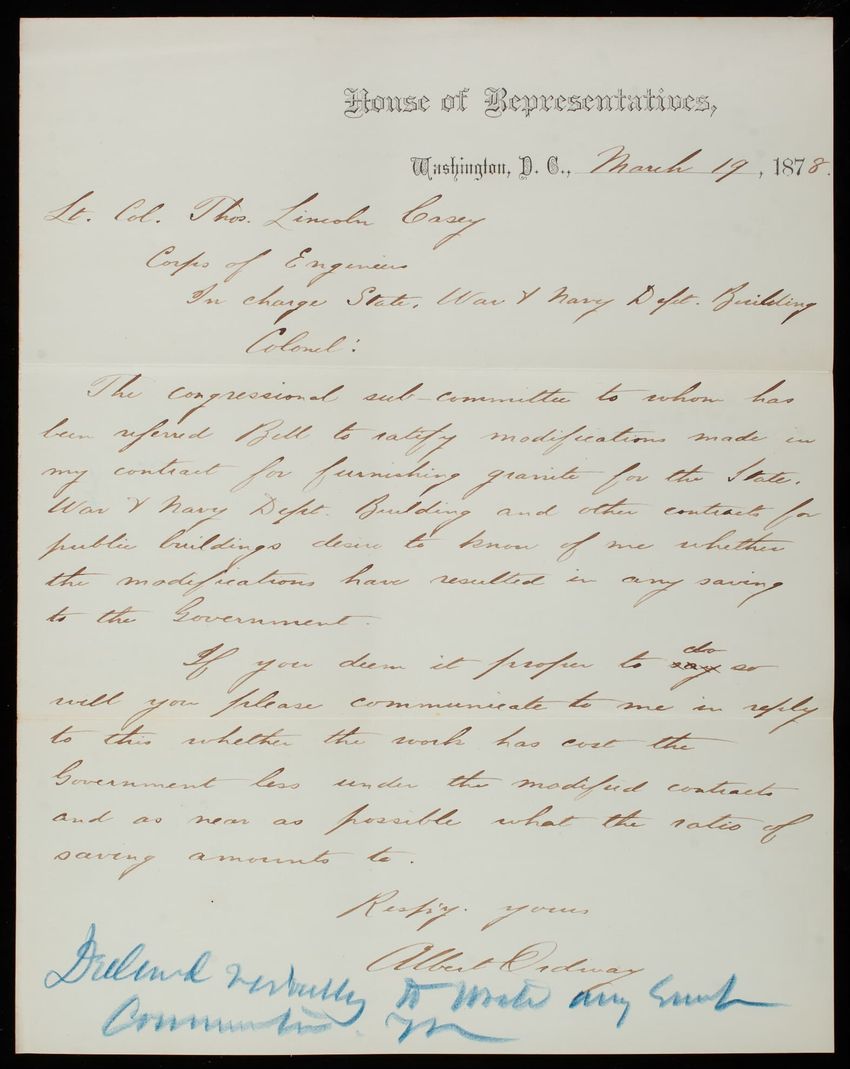 House of Representatives,
Washington, D. C., March 19, 1878.
Lt. Col. Thos. Lincoln Casey
Corps of Engineers
In charge State, War & Navy Dept. Building
Colonel:
The congressional sub-committee to whom has
been referred Bill to ratify modifications made in
my contract for furnishing granite for the State,
War & Navy Dept. Building and other contracts for
public buildings desire to know of me whether
the modifications have resulted in any saving
to the Government.
If you deem it proper to say do so
will you please communicate to me in reply
to this whether the work has cost the
Government less under the modified contracts
and as near as possible what the ratio of
saving amounts to.
Respy. yours
Albert Ordway
Declined verbally to write any such